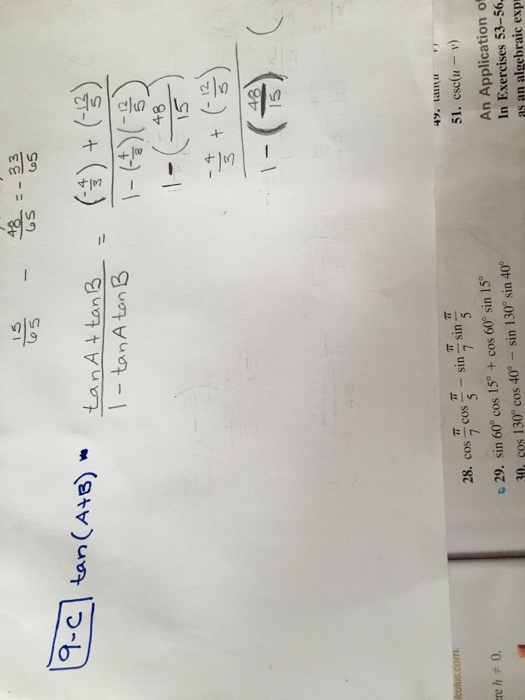 15/65 - 48/65 = - 33/65
9-C tan(A+B) = (tanA + tanB)/(1 - tanA tanB) = ((-4/3) + (-12/5))/(1 - (-4/3)(-12/5))
1 - (48/15)
(-4/3 + (-12/5))/(1 - (48/15)) (
28. cos π/7 cos π/5 - sin π/7 sin π/5
29. sin 60° cos 15° + cos 60° sin 15°
30. cos 130° cos 40° - sin 130° sin 40°
51. csc(u - v)
An Application of
In Exercises 53–56,
as an algebraic exp
h ≠ 0.